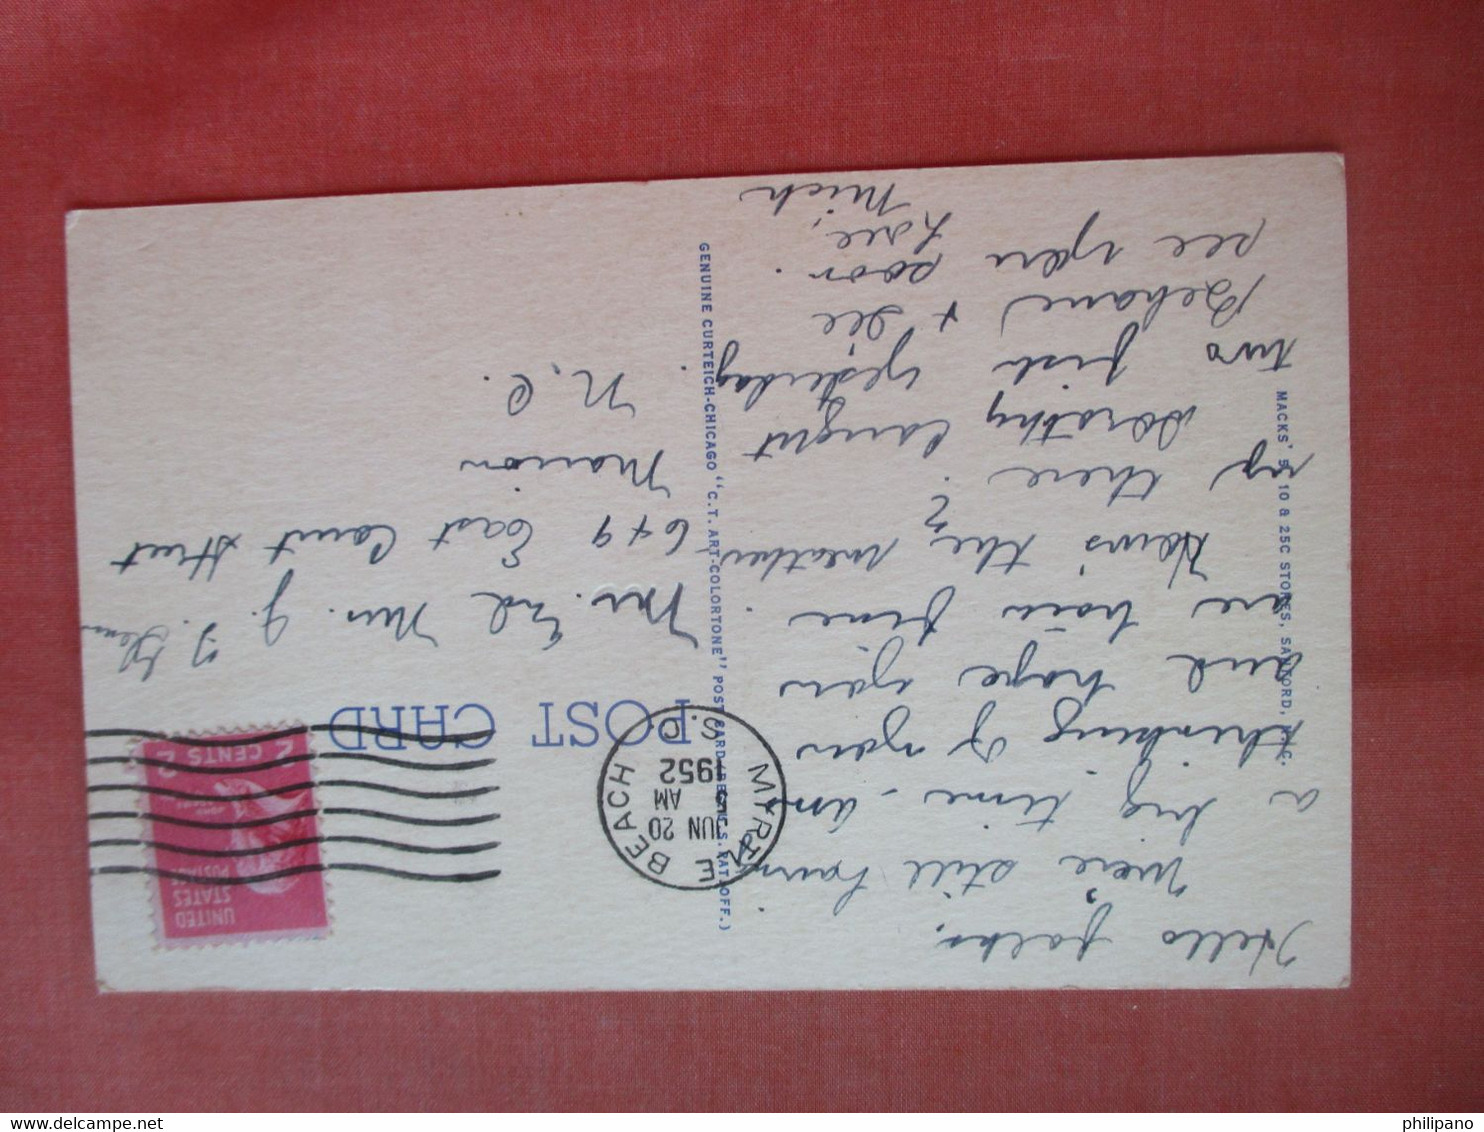 Hello folks,
We're still having
a big time - am
thinking of you
and hope you
are both fine.
How's the weather
up there?
Dorothy caught
two fish yesterday.
Behave & see
see you soon.
Love,
Mich
POST CARD
UNITED
STATES
POSTAGE
2 CENTS 2
MYRTLE BEACH S.C.
JUN 20
AM
1952
Mr. and Mrs. J.
649 East Court Street
Marion
N.C.
MACKS' 5, 10 & 25C STORES, SANFORD, N.C.
GENUINE CURTEICH-CHICAGO "C.T. ART-COLORTONE" POST CARD (REG. U.S. PAT. OFF.)
philipano
delcampe.net